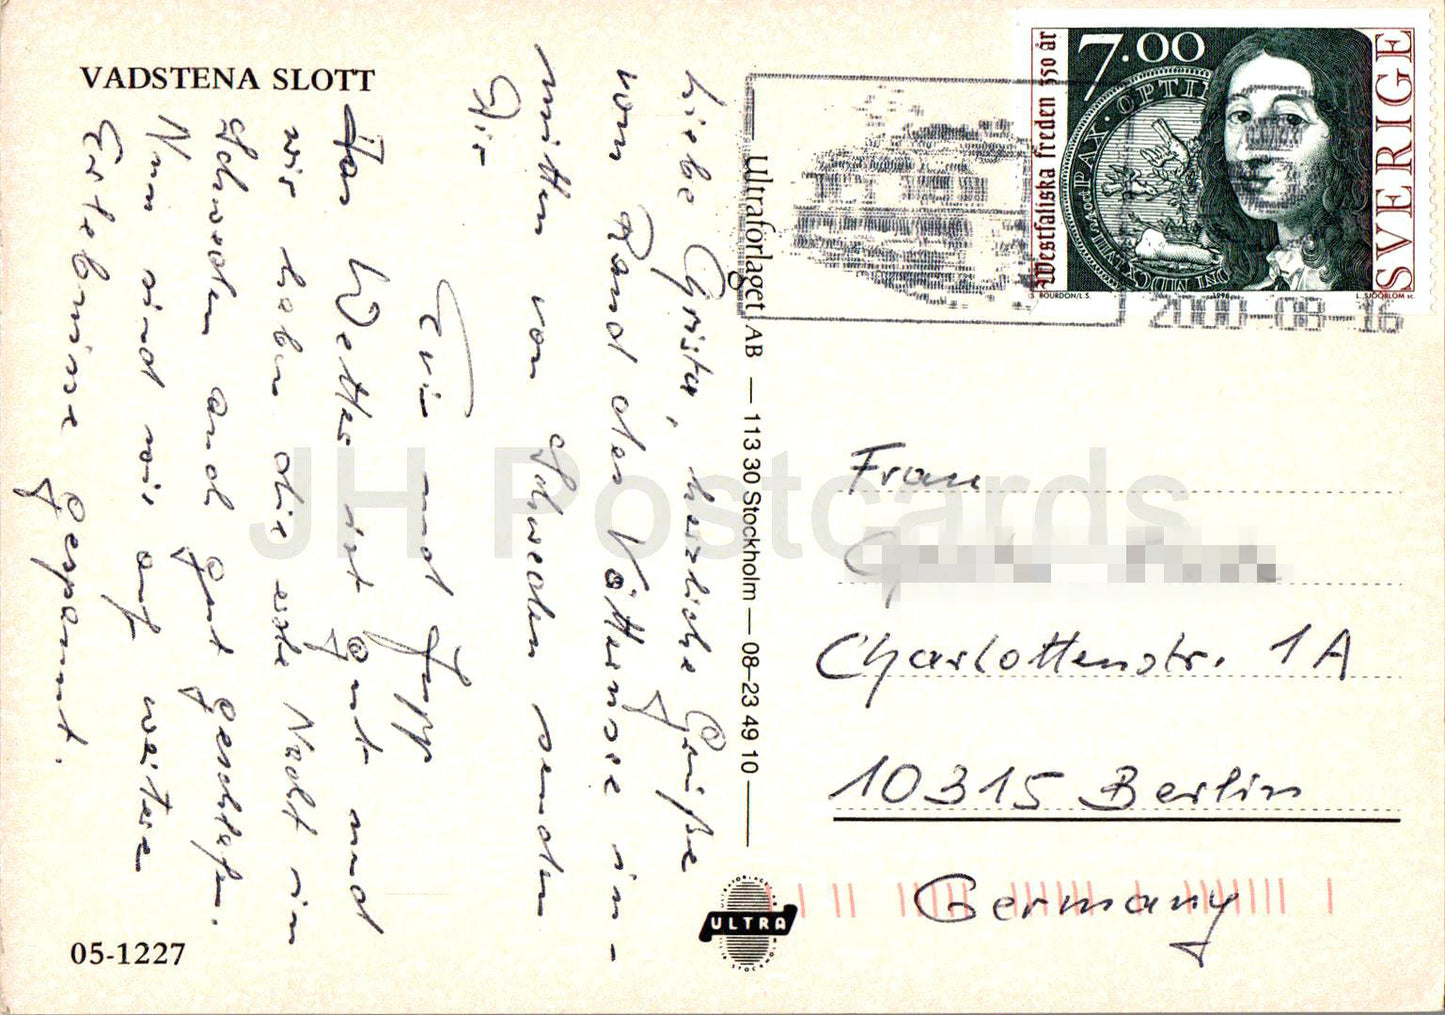 VADSTENA SLOTT
Liebe Christa, herzliche Grüße
vom Rand des Vätternsee in-
mitten von Schweden senden
Dir
Evi und Jupp
Das Wetter ist gut und
wir haben die erste Nacht in
Schweden auch gut geschlafen.
Nun sind wir auf weitere
Erlebnisse gespannt.
05-1227
Ultraförlaget AB — 113 30 Stockholm — 08-23 49 10
ULTRA
7.00
Westfaliska freden 350 år
SVERIGE
PAX · OPTI
S. BOURDON/L.S.
1998
L. SJÖÖBLOM sc.
2000-08-16
Frau
Charlottenstr. 1A
10315 Berlin
Germany
JH Postcards